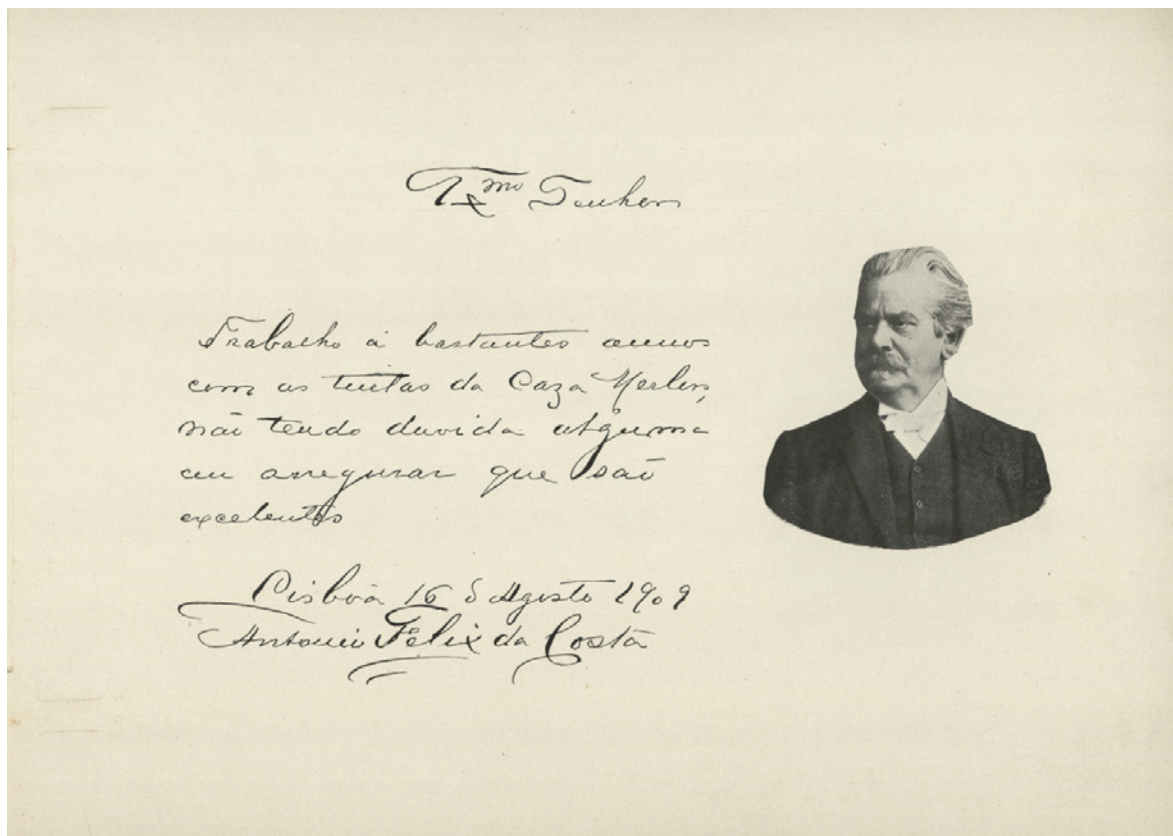 Exmo Senhor
Trabalho á bastantes annos
com as tintas da Caza Merlin,
não tendo duvida alguma
em assegurar que são
excelentes
Lisbôa 16 d'Agosto 1909
Antonio Felix da Costa